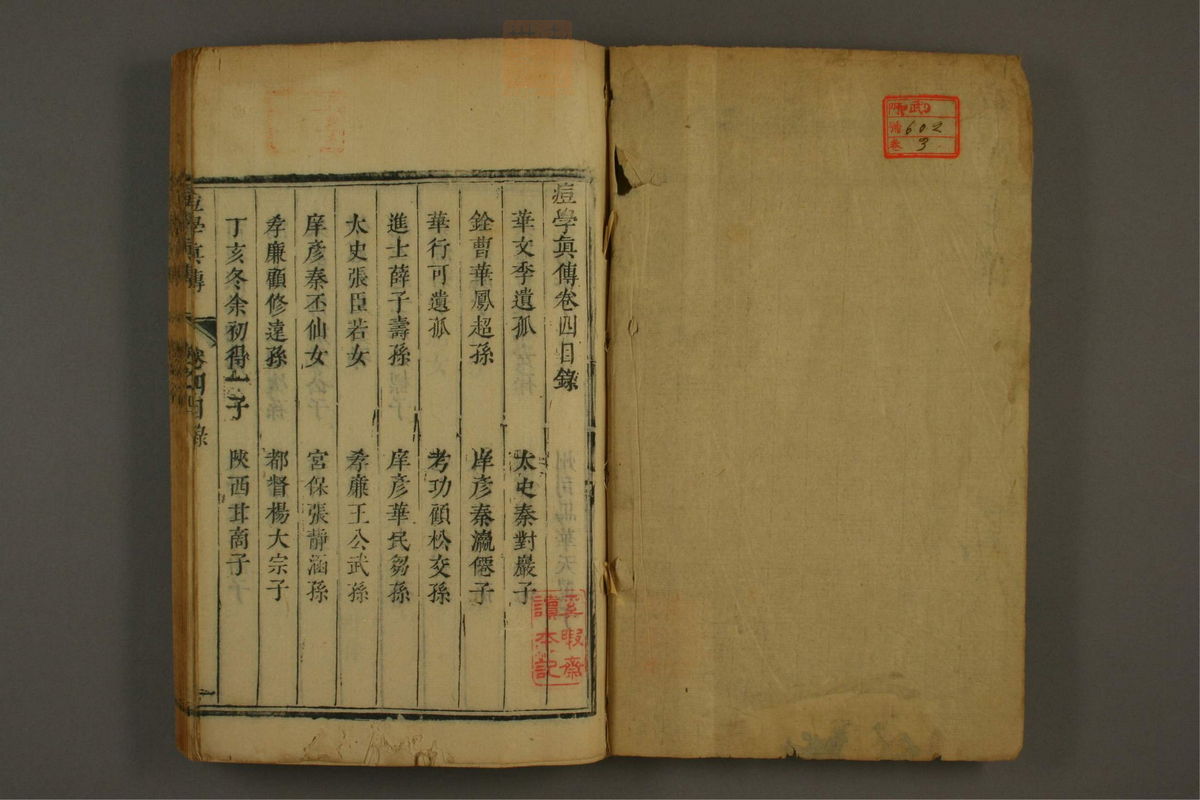 痘學眞傳卷四目錄
華文季遺孤　太史秦對巖子
銓曹華鳳超孫　庠彥秦瀛僊子
華行可遺孤　考功顧松交孫
進士薛子壽孫　庠彥華民芻孫
太史張臣若女　孝廉王公武孫
庠彥秦丕仙女　宮保張靜涵孫
孝廉顧修遠孫　都督楊大宗子
丁亥冬余初得一子　陝西甘商子
痘學眞傳　卷四目錄
暇齋
讀本記
602
3